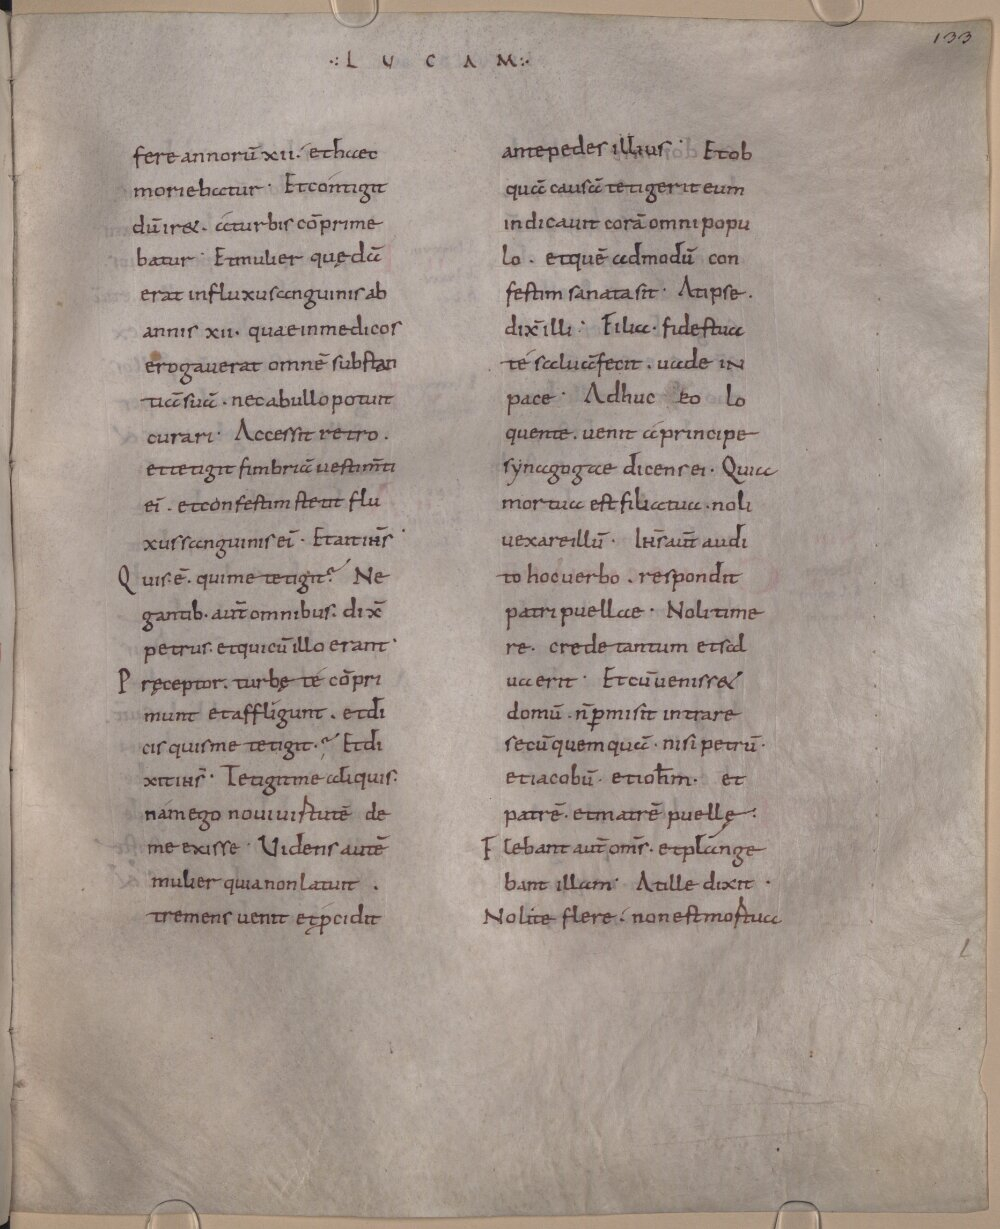 133
·:L U C A M:·
fere annorū xii. et haec
moriebatur· Et contigit
dū iret. a turbis cōprime
batur· Et mulier quędā
erat in fluxu sanguinis ab
annis xii. quae in medicos
erogaverat omnē substan
tiā suā. nec ab ullo potuit
curari· Accessit retro.
et tetigit fimbriā vestim̄ti
ei'. et confestim stetit flu
xus sanguinis ei'. Et ait ih̅s·
Quis.ē. qui me tetigit? Ne
gantib· aut̄ omnibus. dix̄
petrus. et qui cū illo erant·
Pręceptor. turbę te cōpri
munt et affligunt. et di
cis quis me tetigit.? Et di
xit ih̅s· Tetigit me aliquis.
nam ego novi virtutē de
me exisse· Videns autē
mulier quia non latuit .
tremens venit et p̄cidit
ante pedes illius· Et ob
quā causā tetigerit eum
indicavit corā omni popu
lo. et quē admodū con
festim sanata sit· At ipse.
dix̄ illi· Filia. fides tua
te salvā fecit. vade in
pace· Adhuc eo lo
quente. venit a principe
synagogae dicens ei. Quia
mortua est filia tua. noli
vexare illū· Ih̅s aut̄ audi
to hoc verbo. respondit
patri puellae· Noli time
re. crede tantum et sal
va erit· Et cū venisset
domū. n̄ p̲misit intrare
secū quemquā. nisi petrū.
et iacobū. et ioh̅m. et
patrē. et matrē puellę·
Flebant aut̄ om̄s. et plange
bant illam· At ille dixit·
Nolite flere. non est mortua